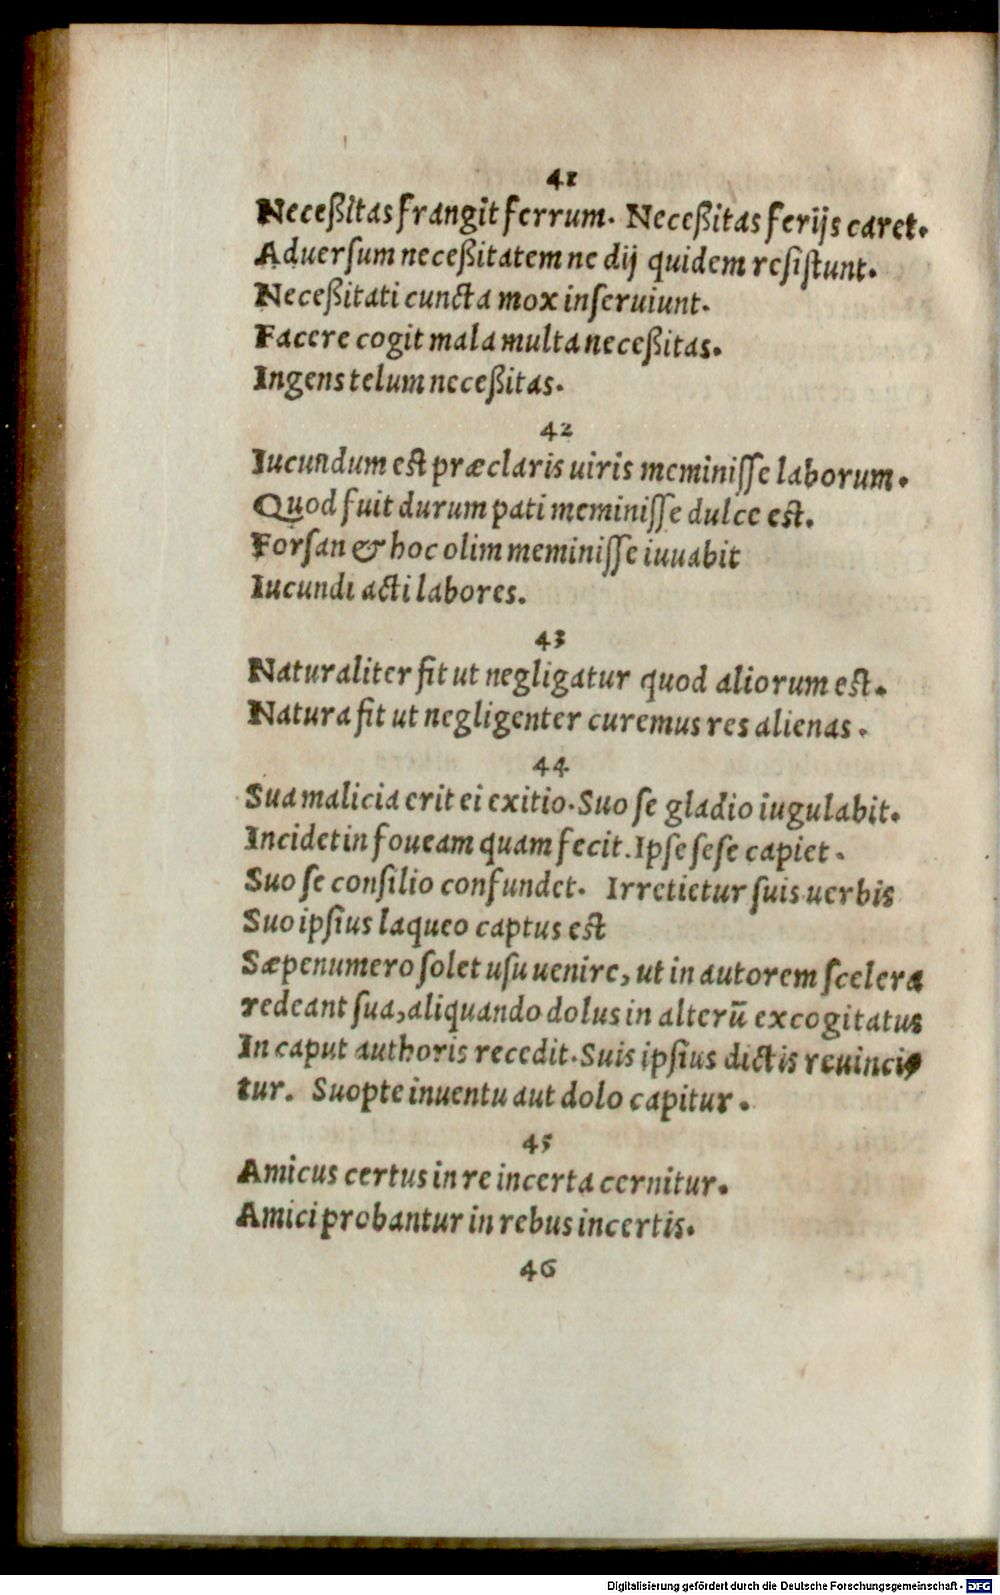 41
Neceßitas frangit ferrum. Neceßitas ferijs caret.
Aduersum neceßitatem ne dij quidem resistunt.
Neceßitati cuncta mox inseruiunt.
Facere cogit mala multa neceßitas.
Ingens telum neceßitas.
42
Iucundum est præclaris uiris meminisse laborum.
Quod fuit durum pati meminisse dulce est.
Forsan & hoc olim meminisse iuuabit
Iucundi acti labores.
43
Naturaliter fit ut negligatur quod aliorum est.
Natura fit ut negligenter curemus res alienas.
44
Sua malicia erit ei exitio. Suo se gladio iugulabit.
Incidet in foueam quam fecit. Ipse sese capiet.
Suo se consilio confundet. Irretietur suis uerbis
Suo ipsius laqueo captus est
Sæpenumero solet usu uenire, ut in autorem scelera
redeant sua, aliquando dolus in alterū excogitatus
In caput authoris recedit. Suis ipsius dictis reuinci
tur. Suopte inuentu aut dolo capitur.
45
Amicus certus in re incerta cernitur.
Amici probantur in rebus incertis.
46
Digitalisierung gefördert durch die Deutsche Forschungsgemeinschaft - DFG